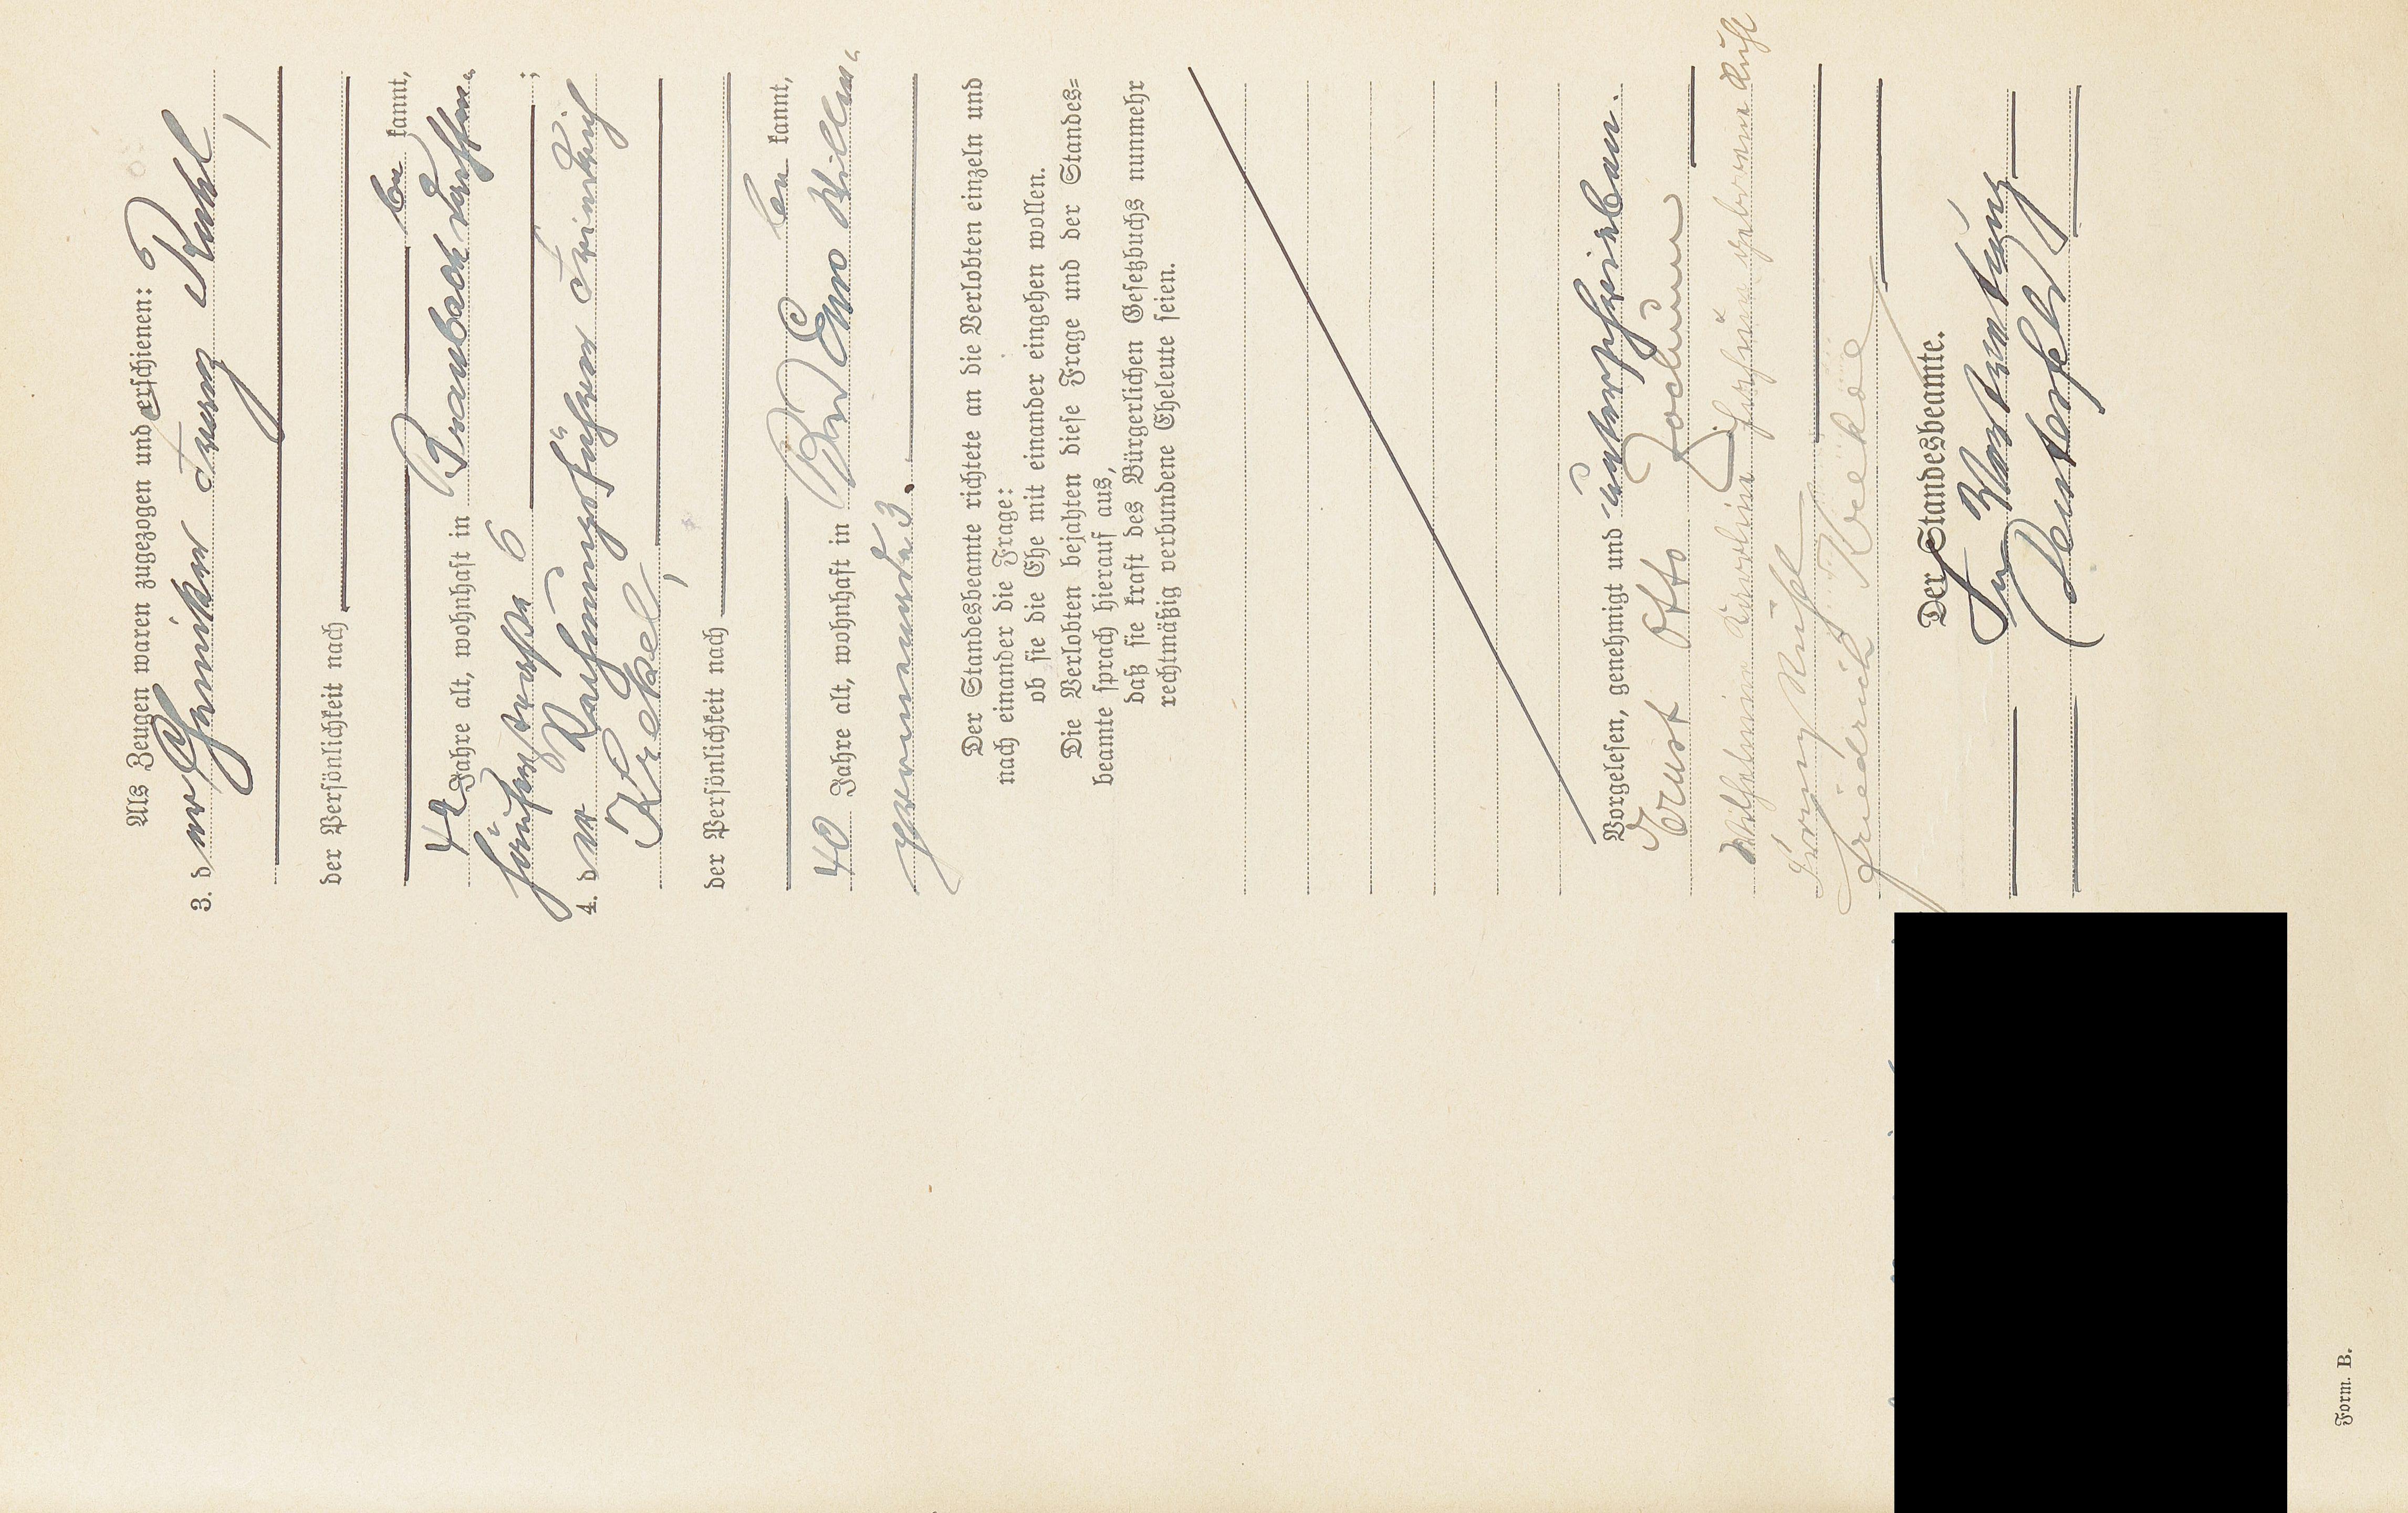 Als Zeugen waren zugezogen und erschienen:
3. der Chemiker Franz Kuhl,
der Persönlichkeit nach
be kannt,
42 Jahre alt, wohnhaft in Braubach
6;
4. der Rechnungsführer Friedrich
Krekel,
der Persönlichkeit nach
be kannt,
40 Jahre alt, wohnhaft in Bad Ems
3.
Der Standesbeamte richtete an die Verlobten einzeln und
nach einander die Frage:
ob sie die Ehe mit einander eingehen wollen.
Die Verlobten bejahten diese Frage und der Standes=
beamte sprach hierauf aus,
daß sie kraft des Bürgerlichen Gesetzbuchs nunmehr
rechtmäßig verbundene Eheleute seien.
Vorgelesen, genehmigt und unterschrieben.
Ernst Otto
Wilhelmine Karoline geborene
Franz
Friedrich
Der Standesbeamte.
In Vertretung
Form. B.